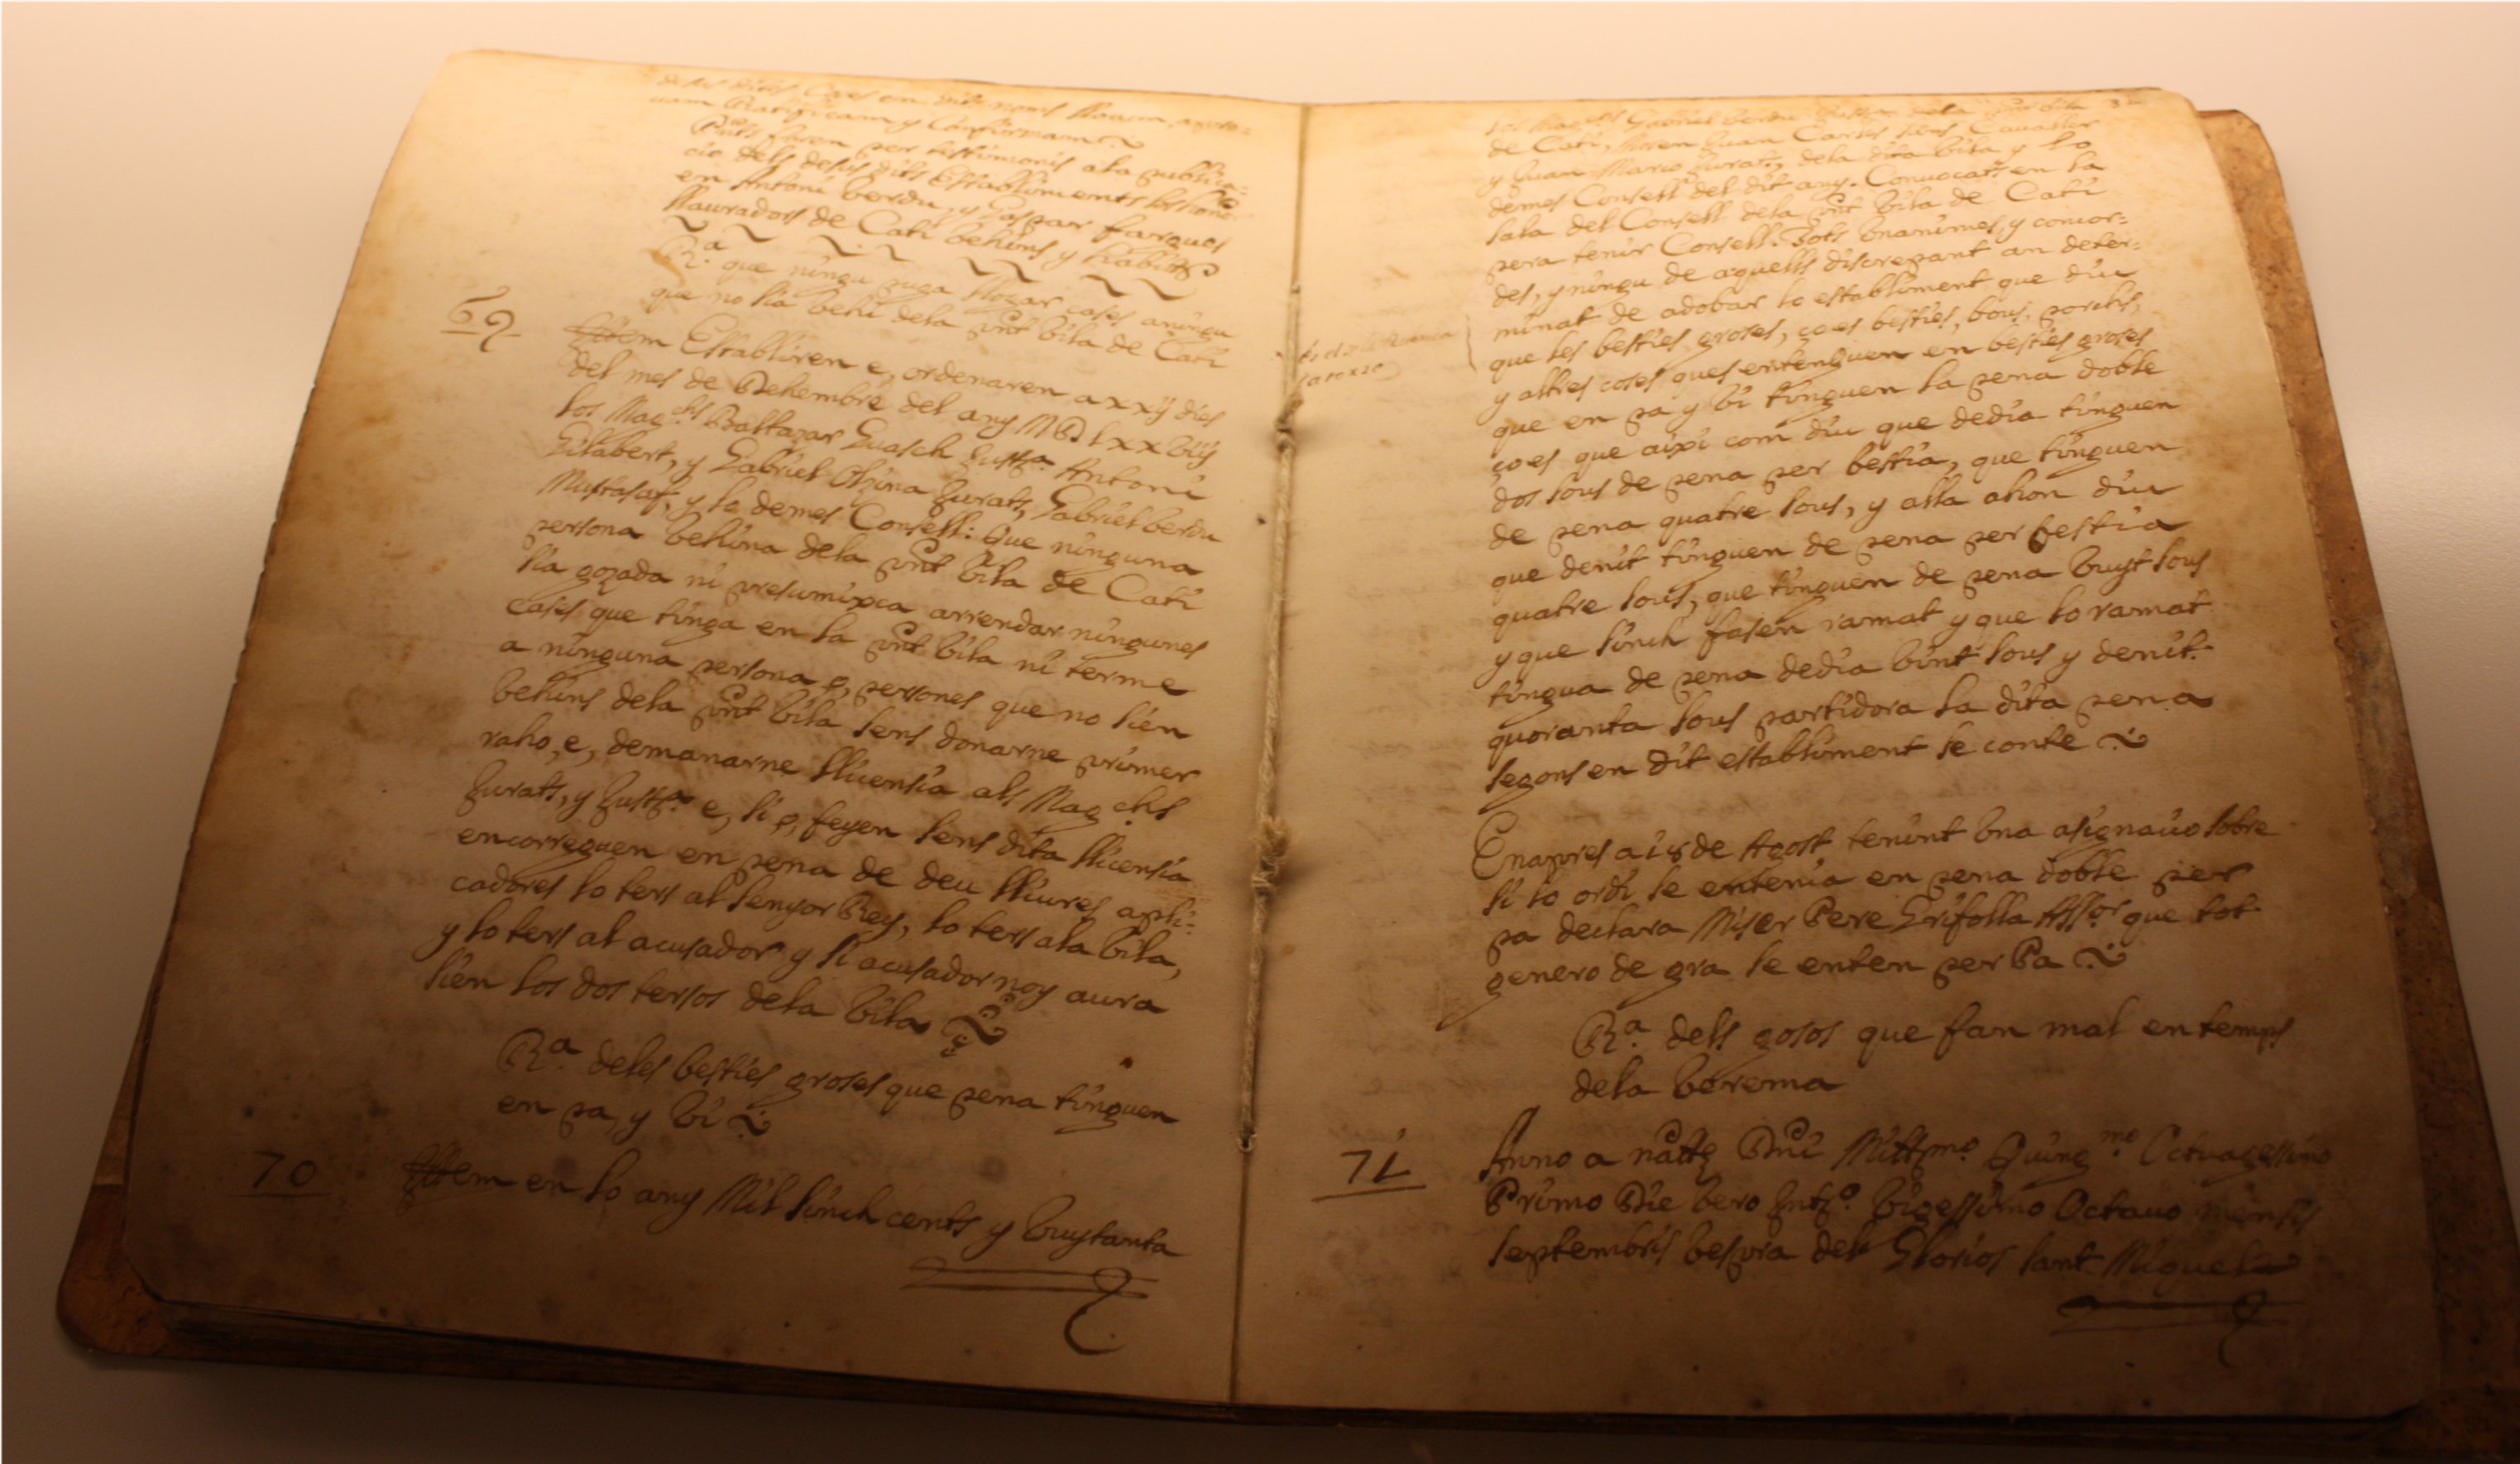 dites Coses en dits noms lloam, apro=
uam Ratificam y Confirmam
Pnts foren per testimonis ala publica=
cio dels desus dits Establiments los honor
en Antoni berdu, y Gaspar farques
llauradors de Cati behins y habitrs
Ra. que ningu puga llogar cases aningu
que no sia behi dela pnt bila de Cati
69
Ittem Establiren e, ordenaren a xxij dies
del mes de Dehembre del any MD lxx biij
los Magchs Baltazar Guasch Justa. Antoni
Gilabert, y Gabriel Olzina Jurats, Gabriel berdu
Mustasaf, y lo demes Consell: Que ninguna
persona behina dela pnt bila de Cati
sia gozada ni presumixca arrendar ningunes
cases que tinga en la pnt bila ni terme
a ninguna persona o, persones que no sien
behins dela pnt bila sens donarne primer
raho, e, demanarne llicensia als Magchs
Jurats, y Justa. e, si o, feyen sens dita llicensia
encorreguen en pena de deu lliures apli=
cadores lo ters al senyor Rey, lo ters ala bila,
y lo ters al acusador y si acusador noy aura
sien los dos tersos dela bila
Ra. deles besties groses que pena tinguen
en pa, y bi
70
Ittem en lo any Mil sinch cents y buytanta
los Magchs Gabriel berdu Justa. dela pnt bila
de Cati, Juan Carles Caualler
y Juan Marco Jurats, dela dita bila y lo
demes Consell del dit any. Conuocats en la
sala del Consell dela pnt bila de Cati
pera tenir Consell. Tots Unanimes, y concor=
des, y ningu de aquells discrepant an deter=
minat de adobar lo establiment que diu
que les besties groses, ço es besties, bous, porchs,
y altres coses ques entenguen en besties groses
que en pa y bi tinguen la pena doble
ço es que aixi com diu que dedia tinguen
dos sous de pena per bestia, que tinguen
de pena quatre sous, y alla ahon diu
que denit tinguen de pena per bestia
quatre sous, que tinguen de pena buyt sous
y que sinch fasen ramat y que lo ramat
tingua de pena dedia bint sous y denit
quoranta sous partidora la dita pena
segons en dit establiment se conte
Enapres a 18 de Agost tenint Una asignacio sobre
si lo ordi se entenia en pena doble per
pa declara Miser Pere Grifolla Assor que tot
genero de gra se enten per Pa
Ra. dels gosos que fan mal en temps
dela berema
71
Anno a natte Dni Millmo. Quingmo. Octuagessimo
Primo Die bero Intto. bigessimo Octauo mensis
septembris bespra del Glorios sant Miquel